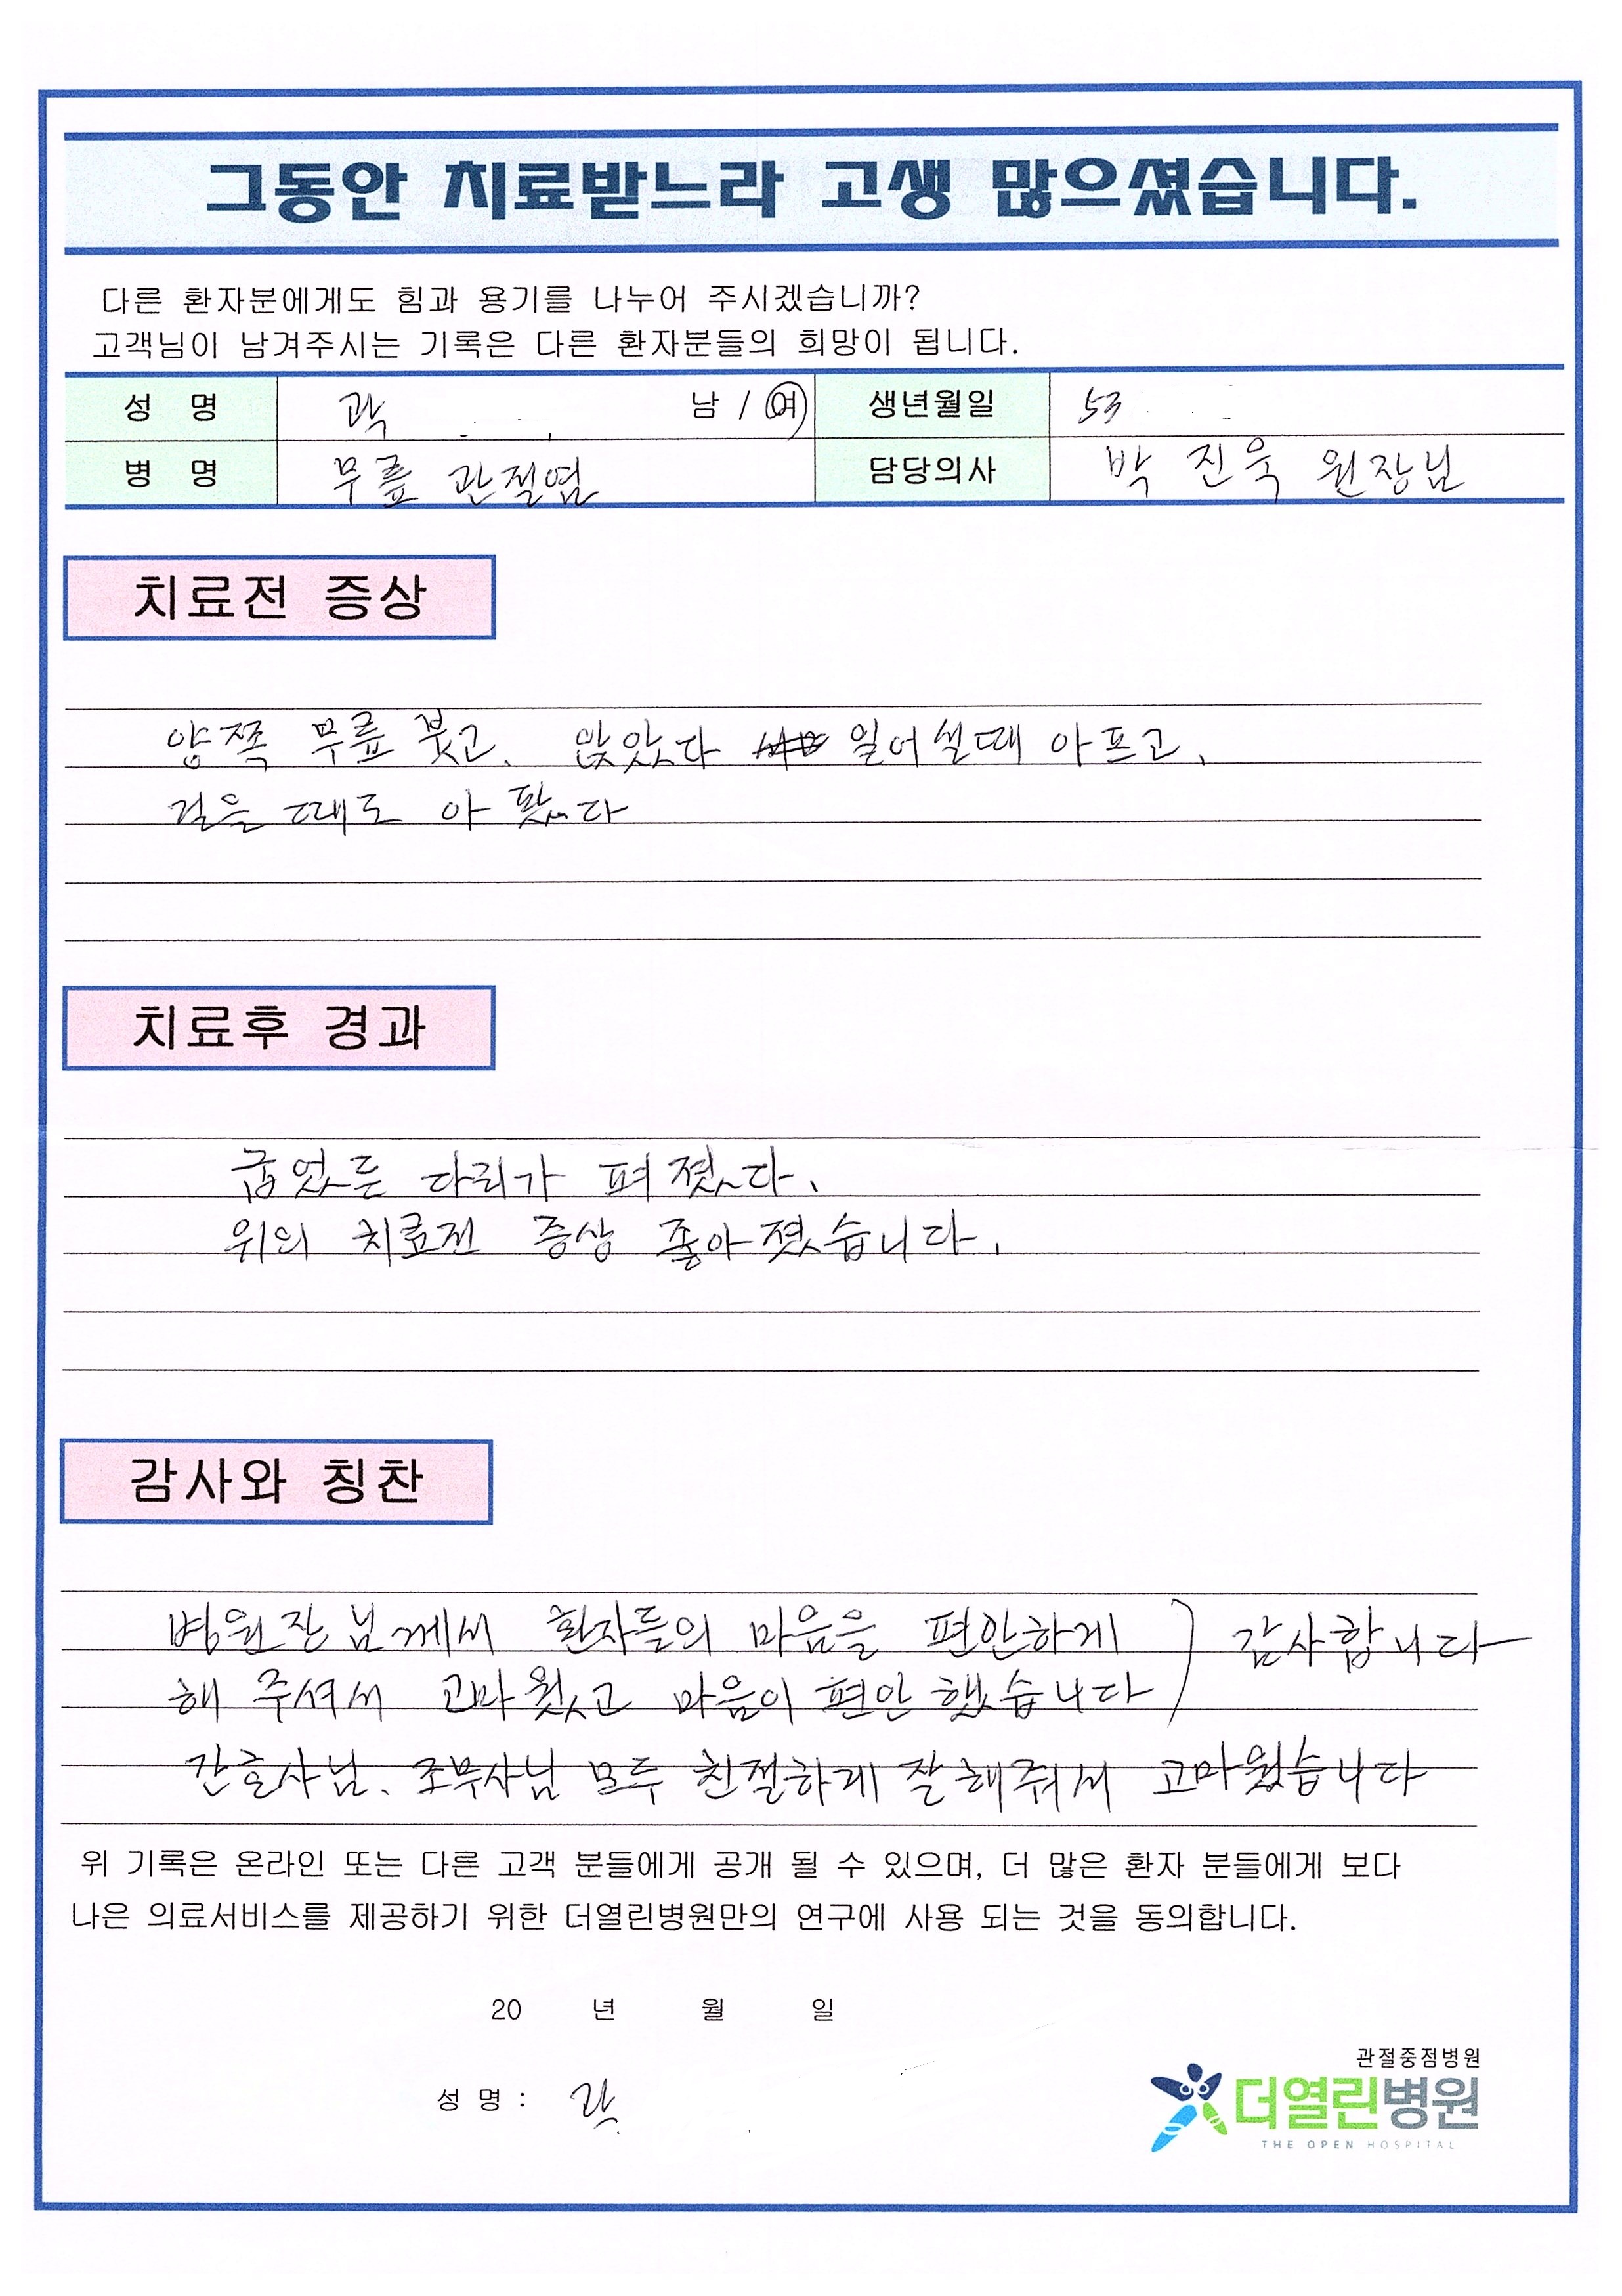 그동안 치료받느라 고생 많으셨습니다.
다른 환자분에게도 힘과 용기를 나누어 주시겠습니까?
고객님이 남겨주시는 기록은 다른 환자분들의 희망이 됩니다.
성 명 곽 남 / 여 생년월일 53
병 명 무릎 관절염 담당의사 박 진욱 원장님
치료전 증상
양쪽 무릎 붓고, 앉았다 일어설때 아프고,
걸을 때도 아팠다
치료후 경과
굽었든 다리가 펴졌다.
위의 치료전 증상 좋아졌습니다.
감사와 칭찬
병원장님께서 환자들의 마음을 편안하게 ) 감사합니다
해 주셔서 고마웠고 마음이 편안했습니다
간호사님, 조무사님 모두 친절하게 잘해줘서 고마웠습니다
위 기록은 온라인 또는 다른 고객 분들에게 공개 될 수 있으며, 더 많은 환자 분들에게 보다
나은 의료서비스를 제공하기 위한 더열린병원만의 연구에 사용 되는 것을 동의합니다.
20 년 월 일
성 명 : 곽
관절중점병원
더열린병원
THE OPEN HOSPITAL